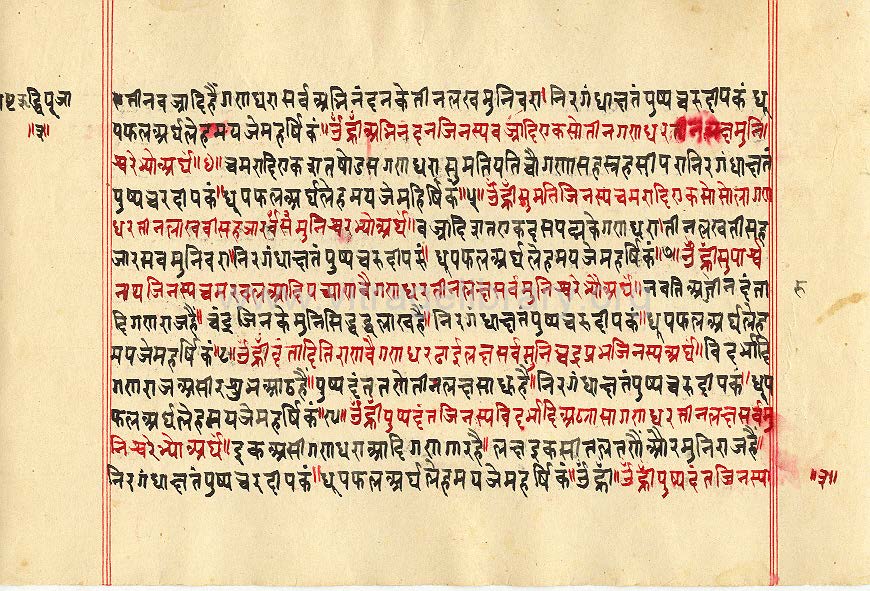 तीनवज्रादिहैंगणधरासर्वअभिनंदनकेतीनलखमुनिवरा।निरगंधाक्षतंपुष्पचरुदीपकंधू
द्धिपूजा
पफलअर्घलेहमयजेमहर्षिकं॥ॐह्रीँअभिनंदनजिनस्यवज्रादिएकसोतीनगणधरतीनलक्षमुनि
॥३॥
श्चरेभ्योअर्घे॥४॥चमरादिएकशतषोडसगणधरासुमतिपतिचौगणासहस्त्रहसीपरानिरगंधाक्षतं
पुष्पचरदीपकं॥धूपफलअर्घलेहमयजेमहिर्षिकं॥५॥ॐह्रीँसुमतिजिनस्यचमरादिएकसोसोलागण
धरतीनलाखवीसहजारसर्वमुनिश्चरभ्योअर्घे॥वज्रादिशतएकदसपद्मकेगणधरा॥तीनलखतीसह
जारसवमुनिवरा॥निरगंधाक्षतंपुष्पचरुदीपकं॥धूपफलअर्घलेहमयजेमहर्षिकं॥७॥ॐह्रीँसुपार्श्व
नयजिनस्यचमरवलआदिपच्याणवैगणधरतीनलक्षसर्वमुनिश्चरेभ्योअर्घे॥नवतिअतीनदंता
दिगणराजहैं॥चंद्रजिनकेमुनिसिद्धलाखहै॥निरगंधाक्षतंपुष्पचरुदीपकं॥धूपफलअर्घलेह
मयजेमहर्षिकं॥८॥ॐह्रीँदंतादितिराणवैगणधरदाईलक्षसर्वमुनिचंद्रप्रभजिनस्यअर्घे॥विदर्भादि
गणराजअसीरशुभआठहै॥पुष्पदंततणेतीनलक्षसाधहै॥निरगंधाक्षतंपुष्पचरुदीपकं॥धूप
फलअर्घलेहमयजेमहर्षिकं॥९॥ॐह्रीँपुष्पदंतजिनस्यविदर्भादिअणसीगणधरतीनलक्षसर्वमु
निश्चरेभ्योअर्घे॥इकअसीगणधराआदिगणगारहै॥लक्षइकसीतलतणेऔरमुनिराजहै॥
निरगंधाक्षतंपुष्पचरदीपकं॥धूपफलअर्घलेहमयजेमहर्षिकं॥ॐह्रीँ॥ॐह्रीँपुष्पदंतजिनस्या
॥३॥